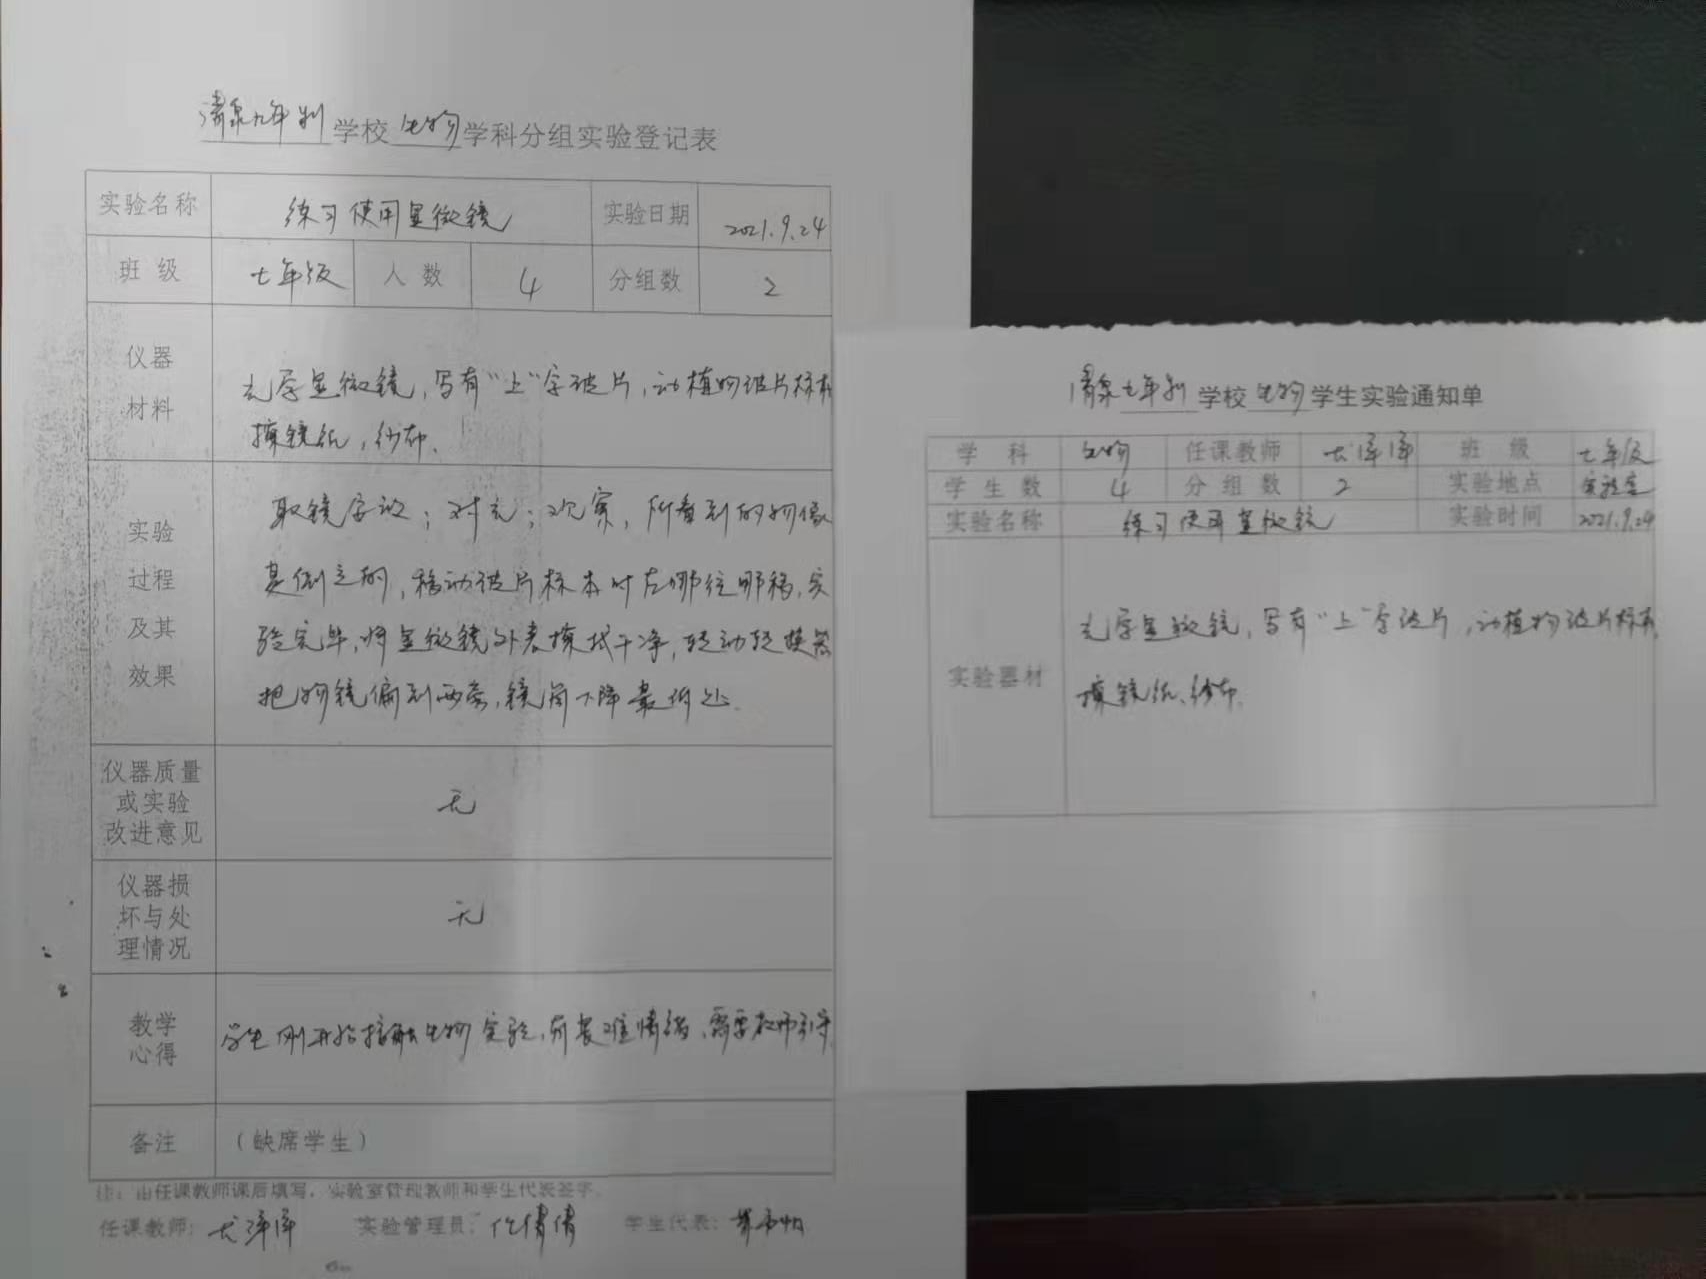 清泉九年制学校生物学科分组实验登记表
实验名称 练习使用显微镜 实验日期 2021.9.24
班 级 七年级 人 数 4 分组数 2
仪器材料
光学显微镜，写有“上”字玻片，动植物玻片标本
擦镜纸，纱布.
实验过程及其效果
取镜安放；对光；观察，所看到的物像
是倒立的，移动玻片标本时左哪往哪移，实
验完毕，将显微镜外表擦拭干净，转动转换器
把物镜偏到两旁，镜筒下降最低处.
仪器质量
或实验
改进意见
无
仪器损
坏与处
理情况
无
教学
心得
学生刚开始接触生物实验，有畏难情绪，需要教师引导
备注 （缺席学生）
注：由任课教师课后填写，实验室管理教师和学生代表签字。
任课教师： 实验管理员： 学生代表：
清泉九年制学校生物学生实验通知单
学 科 生物 任课教师 班 级 七年级
学 生 数 4 分 组 数 2 实验地点 实验室
实验名称 练习使用显微镜 实验时间 2021.9.24
实验器材
光学显微镜，写有“上”字玻片，动植物玻片标本
擦镜纸、纱布.